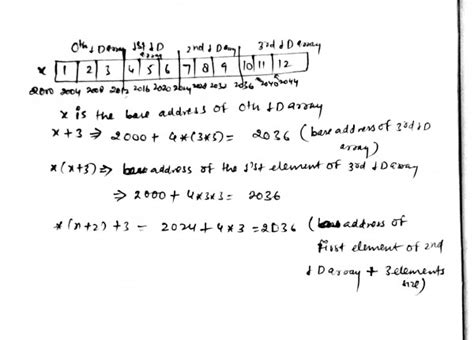 0th 1D array 1st 1D array 2nd 1D array 3rd 1D array
x 1 2 3 4 5 6 7 8 9 10 11 12
2000 2004 2008 2012 2016 2020 2024 2028 2032 2036 2040 2044
x is the base address of 0th 1D array
x+3 ⇒ 2000 + 4*(3*3) = 2036 (base address of 3rd 1D
array)
*(x+3) ⇒ base address of the 1st element of 3rd 1D array
⇒ 2000 + 4*3*3 = 2036
*(x+2) + 3 = 2024 + 4*3 = 2036 (address of
first element of 2nd
1D array + 3 elements
size)